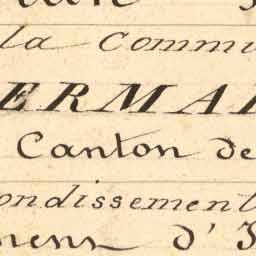 la Commu
ERMA
Canton de
ondissement
mens d'I